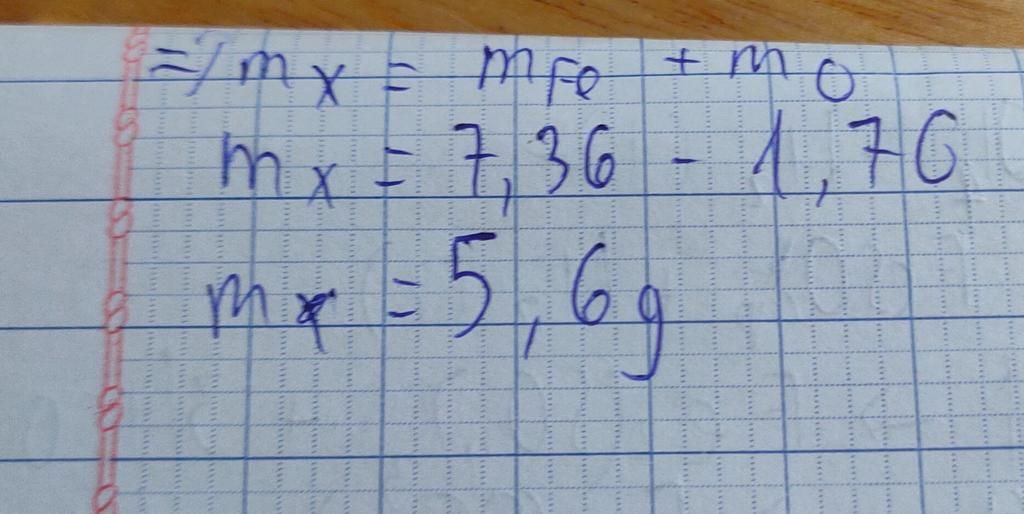 => m X = m Fe + m O
m X = 7,36 - 1,76
m X = 5,6 g